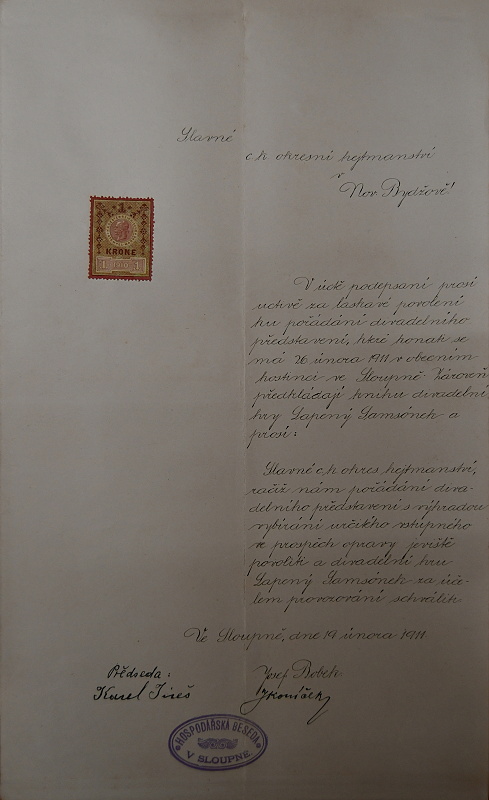 Slavné
c. k. okresní hejtmanství
v
Nov. Bydžově!
KRONE
1 1
V úctě podepsaní prosí
uctivě za laskavé povolení
ku pořádání divadelního
představení, které konati se
má 26 února 1911 v obecním
hostinci ve Sloupně. Zároveň
předkládají knihu divadelní
hry Lapený Samsónek a
prosí:
Slavné c. k. okres. hejtmanství,
račiž nám pořádání diva-
delního představení s výhradou
vybírání určitého vstupného
ve prospěch opravy jeviště
povoliti a divadelní hru
Lapený Samsónek za úče-
lem provozování schváliti.
Ve Sloupně, dne 19 února 1911
Předseda:
Karel
Josef
HOSPODÁŘSKÁ BESEDA
V SLOUPNĚ